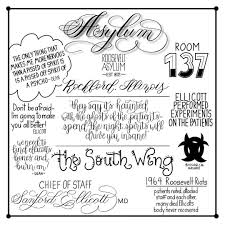 Asylum
THE ONLY THING
THAT MAKES ME MORE NERVOUS
THAN A PISSED OFF SPIRIT
IS A PISSED OFF SPIRIT OF
A PSYCHO KILLER
ROOSEVELT
ASYLUM
Rockford, Illinois
ROOM
137
Don't be afraid-
I'm going to make
you all better!
ELLICOTT
they say it's haunted
with the ghosts of the patients
spend the night and the spirits
will drive you insane
ELLICOTT
PERFORMED
EXPERIMENTS
ON THE
PATIENTS
we need to
find Ellicott's
bones and
burn em
The South Wing
CHIEF OF STAFF
Sanford Ellicott MD
1964 Roosevelt Riots
patients rioted, attacked
staff and each other
many died Ellicott's
body never recovered